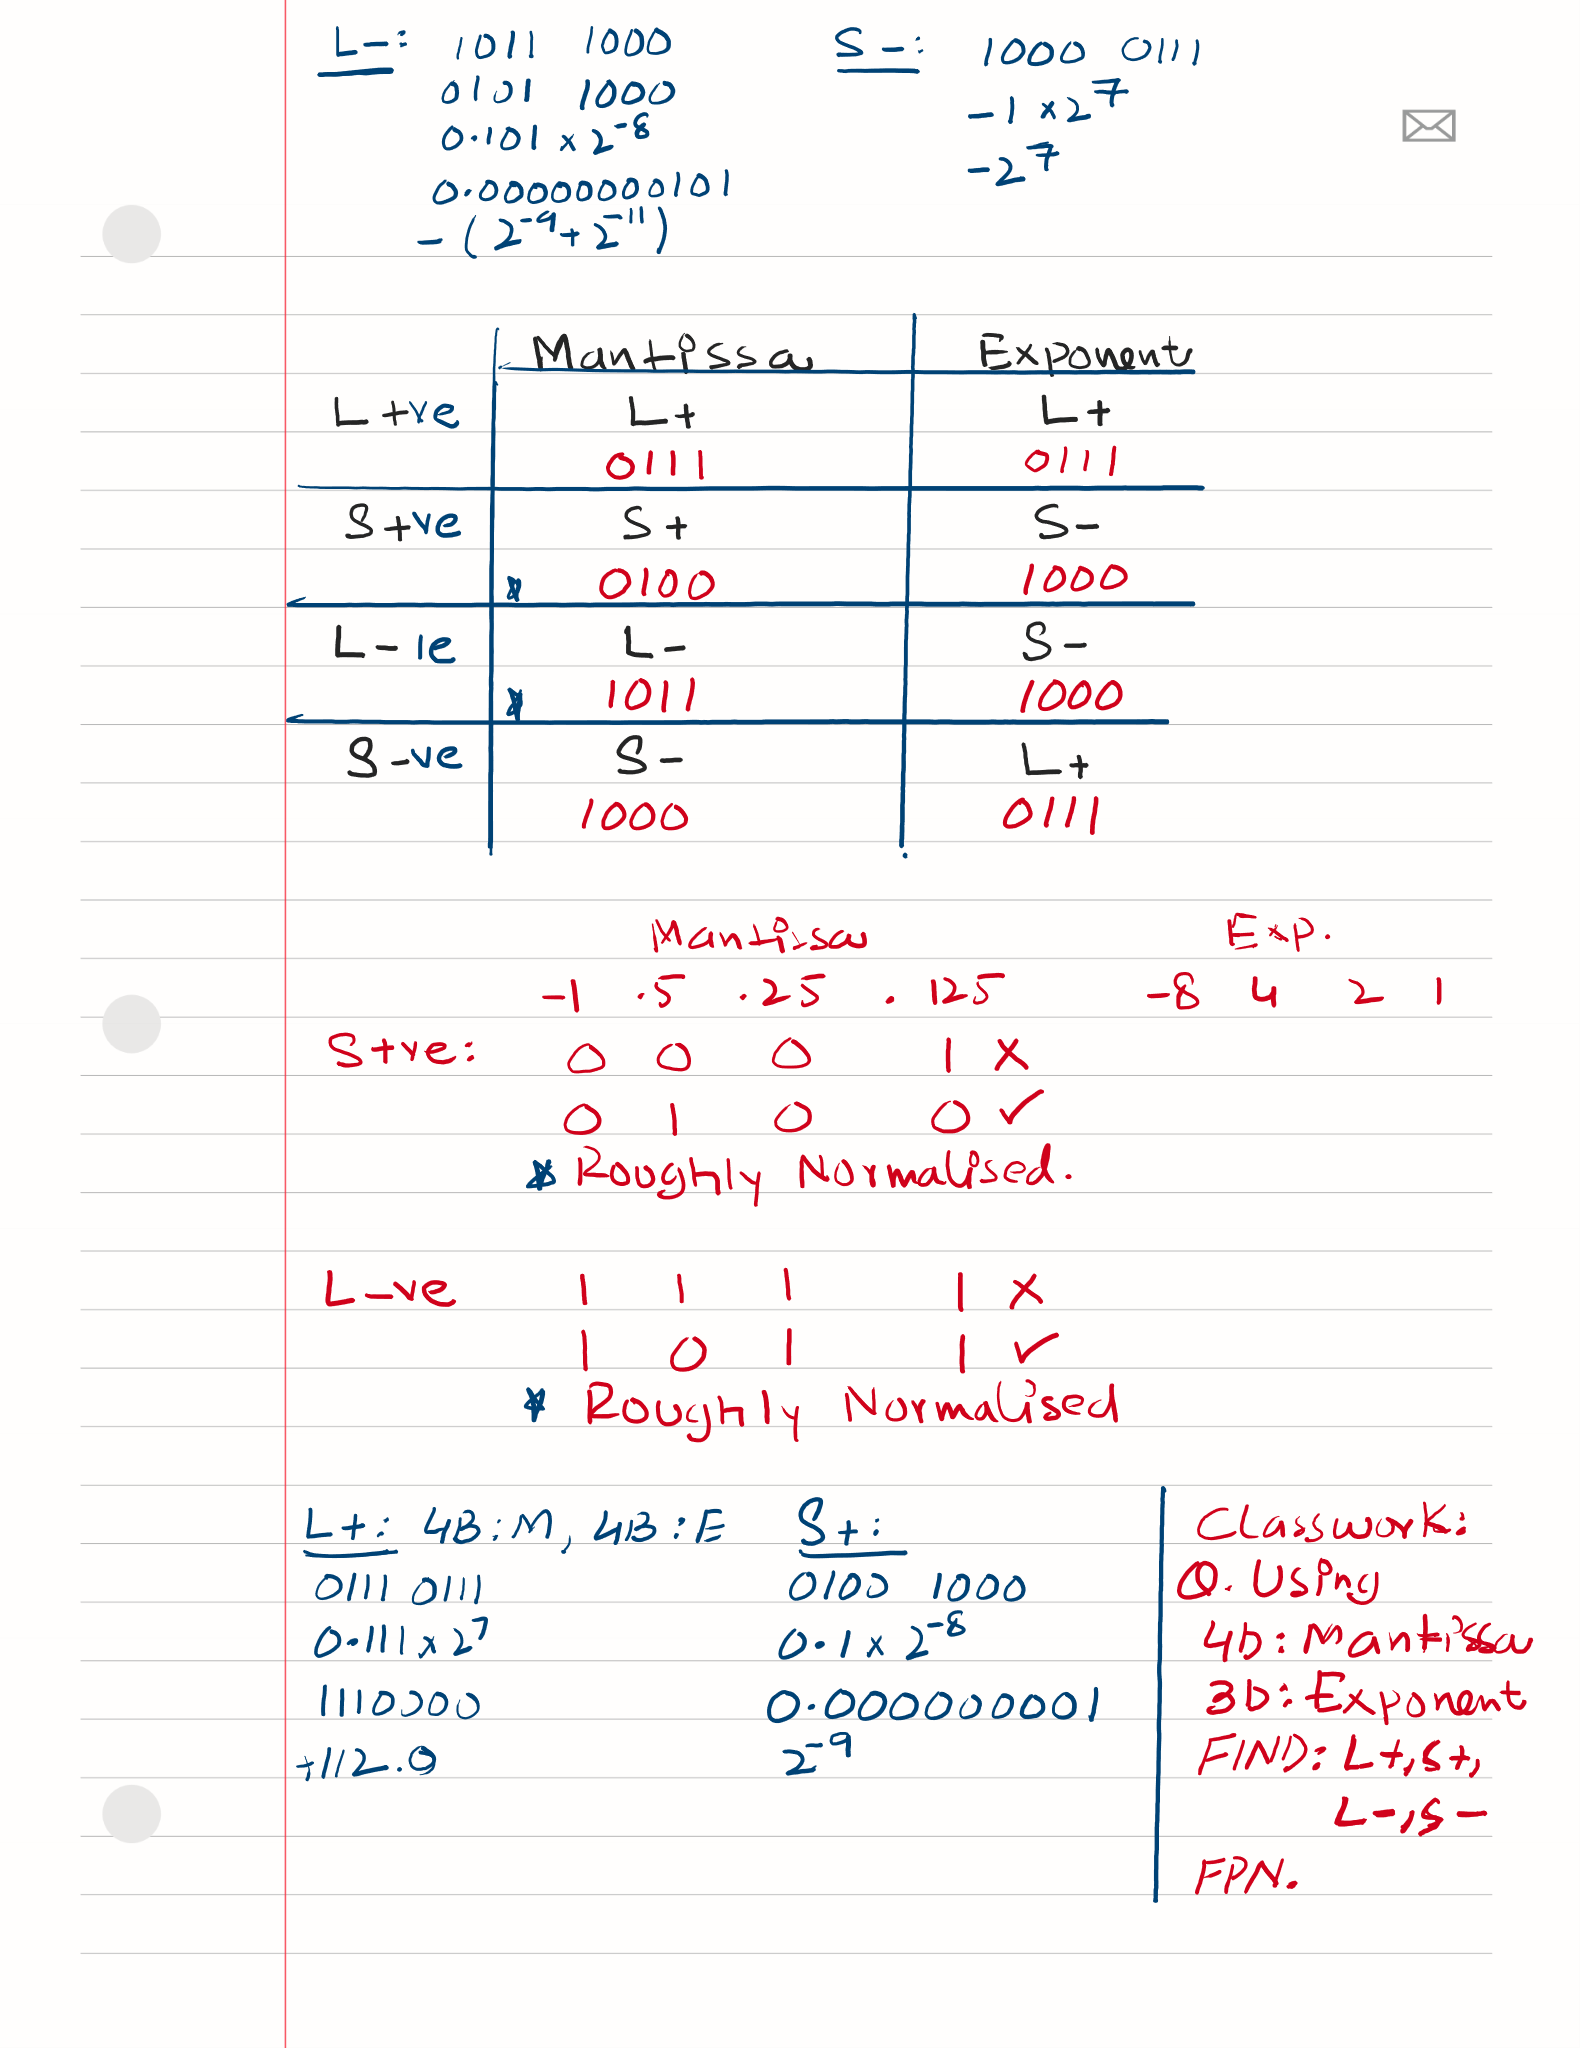 L-: 1011 1000
0101 1000
0.101 x 2⁻⁸
0.00000000101
- (2⁻⁹+2⁻¹¹)
S-: 1000 0111
-1 x 2⁷
-2⁷
Mantissa Exponent
L +ve L+ L+
0111 0111
S+ve S+ S-
* 0100 1000
L-ve L- S-
* 1011 1000
S-ve S- L+
1000 0111
Mantissa Exp.
-1 .5 .25 .125 -8 4 2 1
S+ve: 0 0 0 1 ×
0 1 0 0 ✓
* Roughly Normalised.
L-ve 1 1 1 1 ×
1 0 1 1 ✓
* Roughly Normalised
L+: 4B:M, 4B:E
0111 0111
0.111 x 2⁷
1110000
+112.0
S+:
0100 1000
0.1 x 2⁻⁸
0.000000001
2⁻⁹
Classwork:
Q. Using
4b: Mantissa
3b: Exponent
FIND: L+,S+,
L-,S-
FPN.